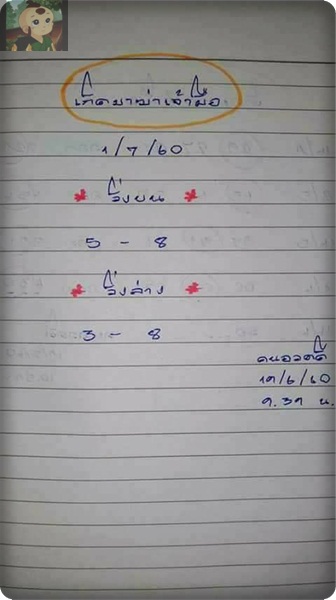 เกิดมาฆ่าเจ้ามือ
1/7/60
* วิ่งบน *
5 - 8
* วิ่งล่าง *
3 - 8
คนอวดดี
19/6/60
9.39 น.